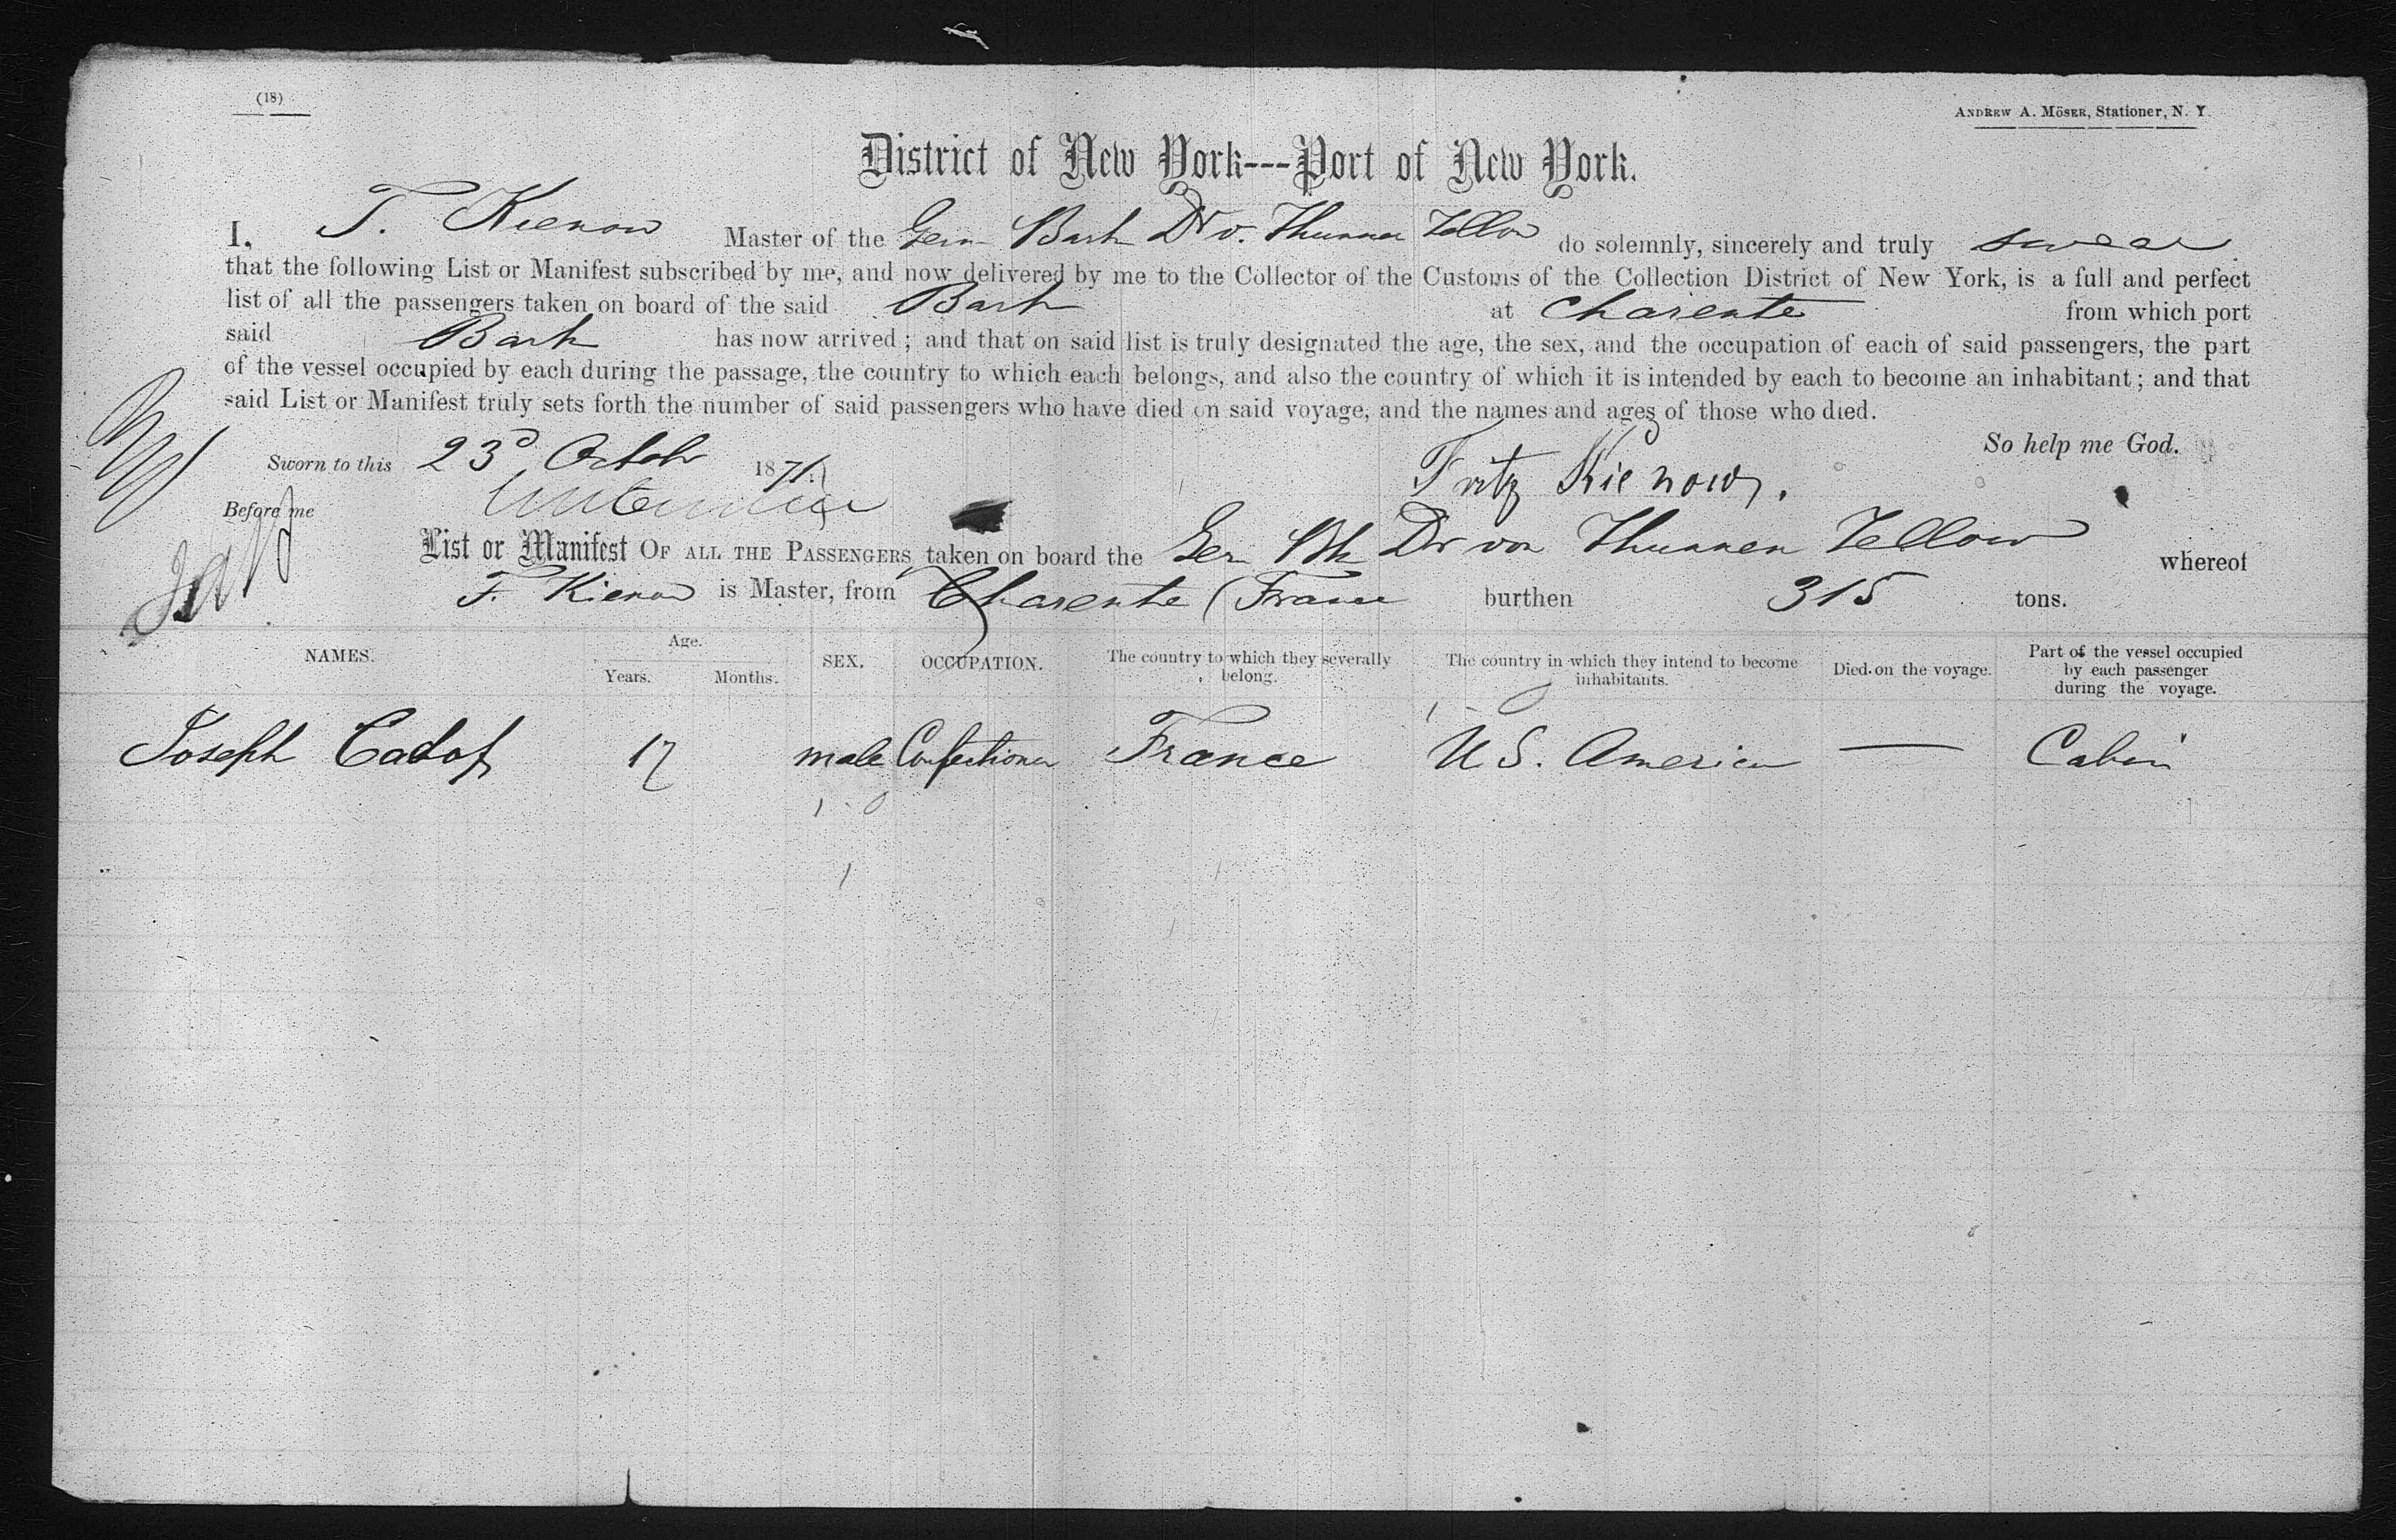 (18)
ANDREW A. MÖSER, Stationer, N. Y.
District of New York---Port of New York.
I, F. Kienow Master of the Germ Bark Dr v. Thunnen Tellow do solemnly, sincerely and truly swear
that the following List or Manifest subscribed by me, and now delivered by me to the Collector of the Customs of the Collection District of New York, is a full and perfect
list of all the passengers taken on board of the said Bark at Charente from which port
said Bark has now arrived; and that on said list is truly designated the age, the sex, and the occupation of each of said passengers, the part
of the vessel occupied by each during the passage, the country to which each belongs, and also the country of which it is intended by each to become an inhabitant; and that
said List or Manifest truly sets forth the number of said passengers who have died on said voyage, and the names and ages of those who died.
So help me God.
Sworn to this 23d Octob 1871.
Fritz Kienow.
Before me
List or Manifest OF ALL THE PASSENGERS taken on board the Ger Bk Dr von Thunnen Tellow whereof
F. Kienow is Master, from Charente (France burthen 315 tons.
NAMES. Age. Years. Months. SEX. OCCUPATION. The country to which they severally belong. The country in which they intend to become inhabitants. Died on the voyage. Part of the vessel occupied by each passenger during the voyage.
Joseph 17 male Confectioner France U S. America — Cabin